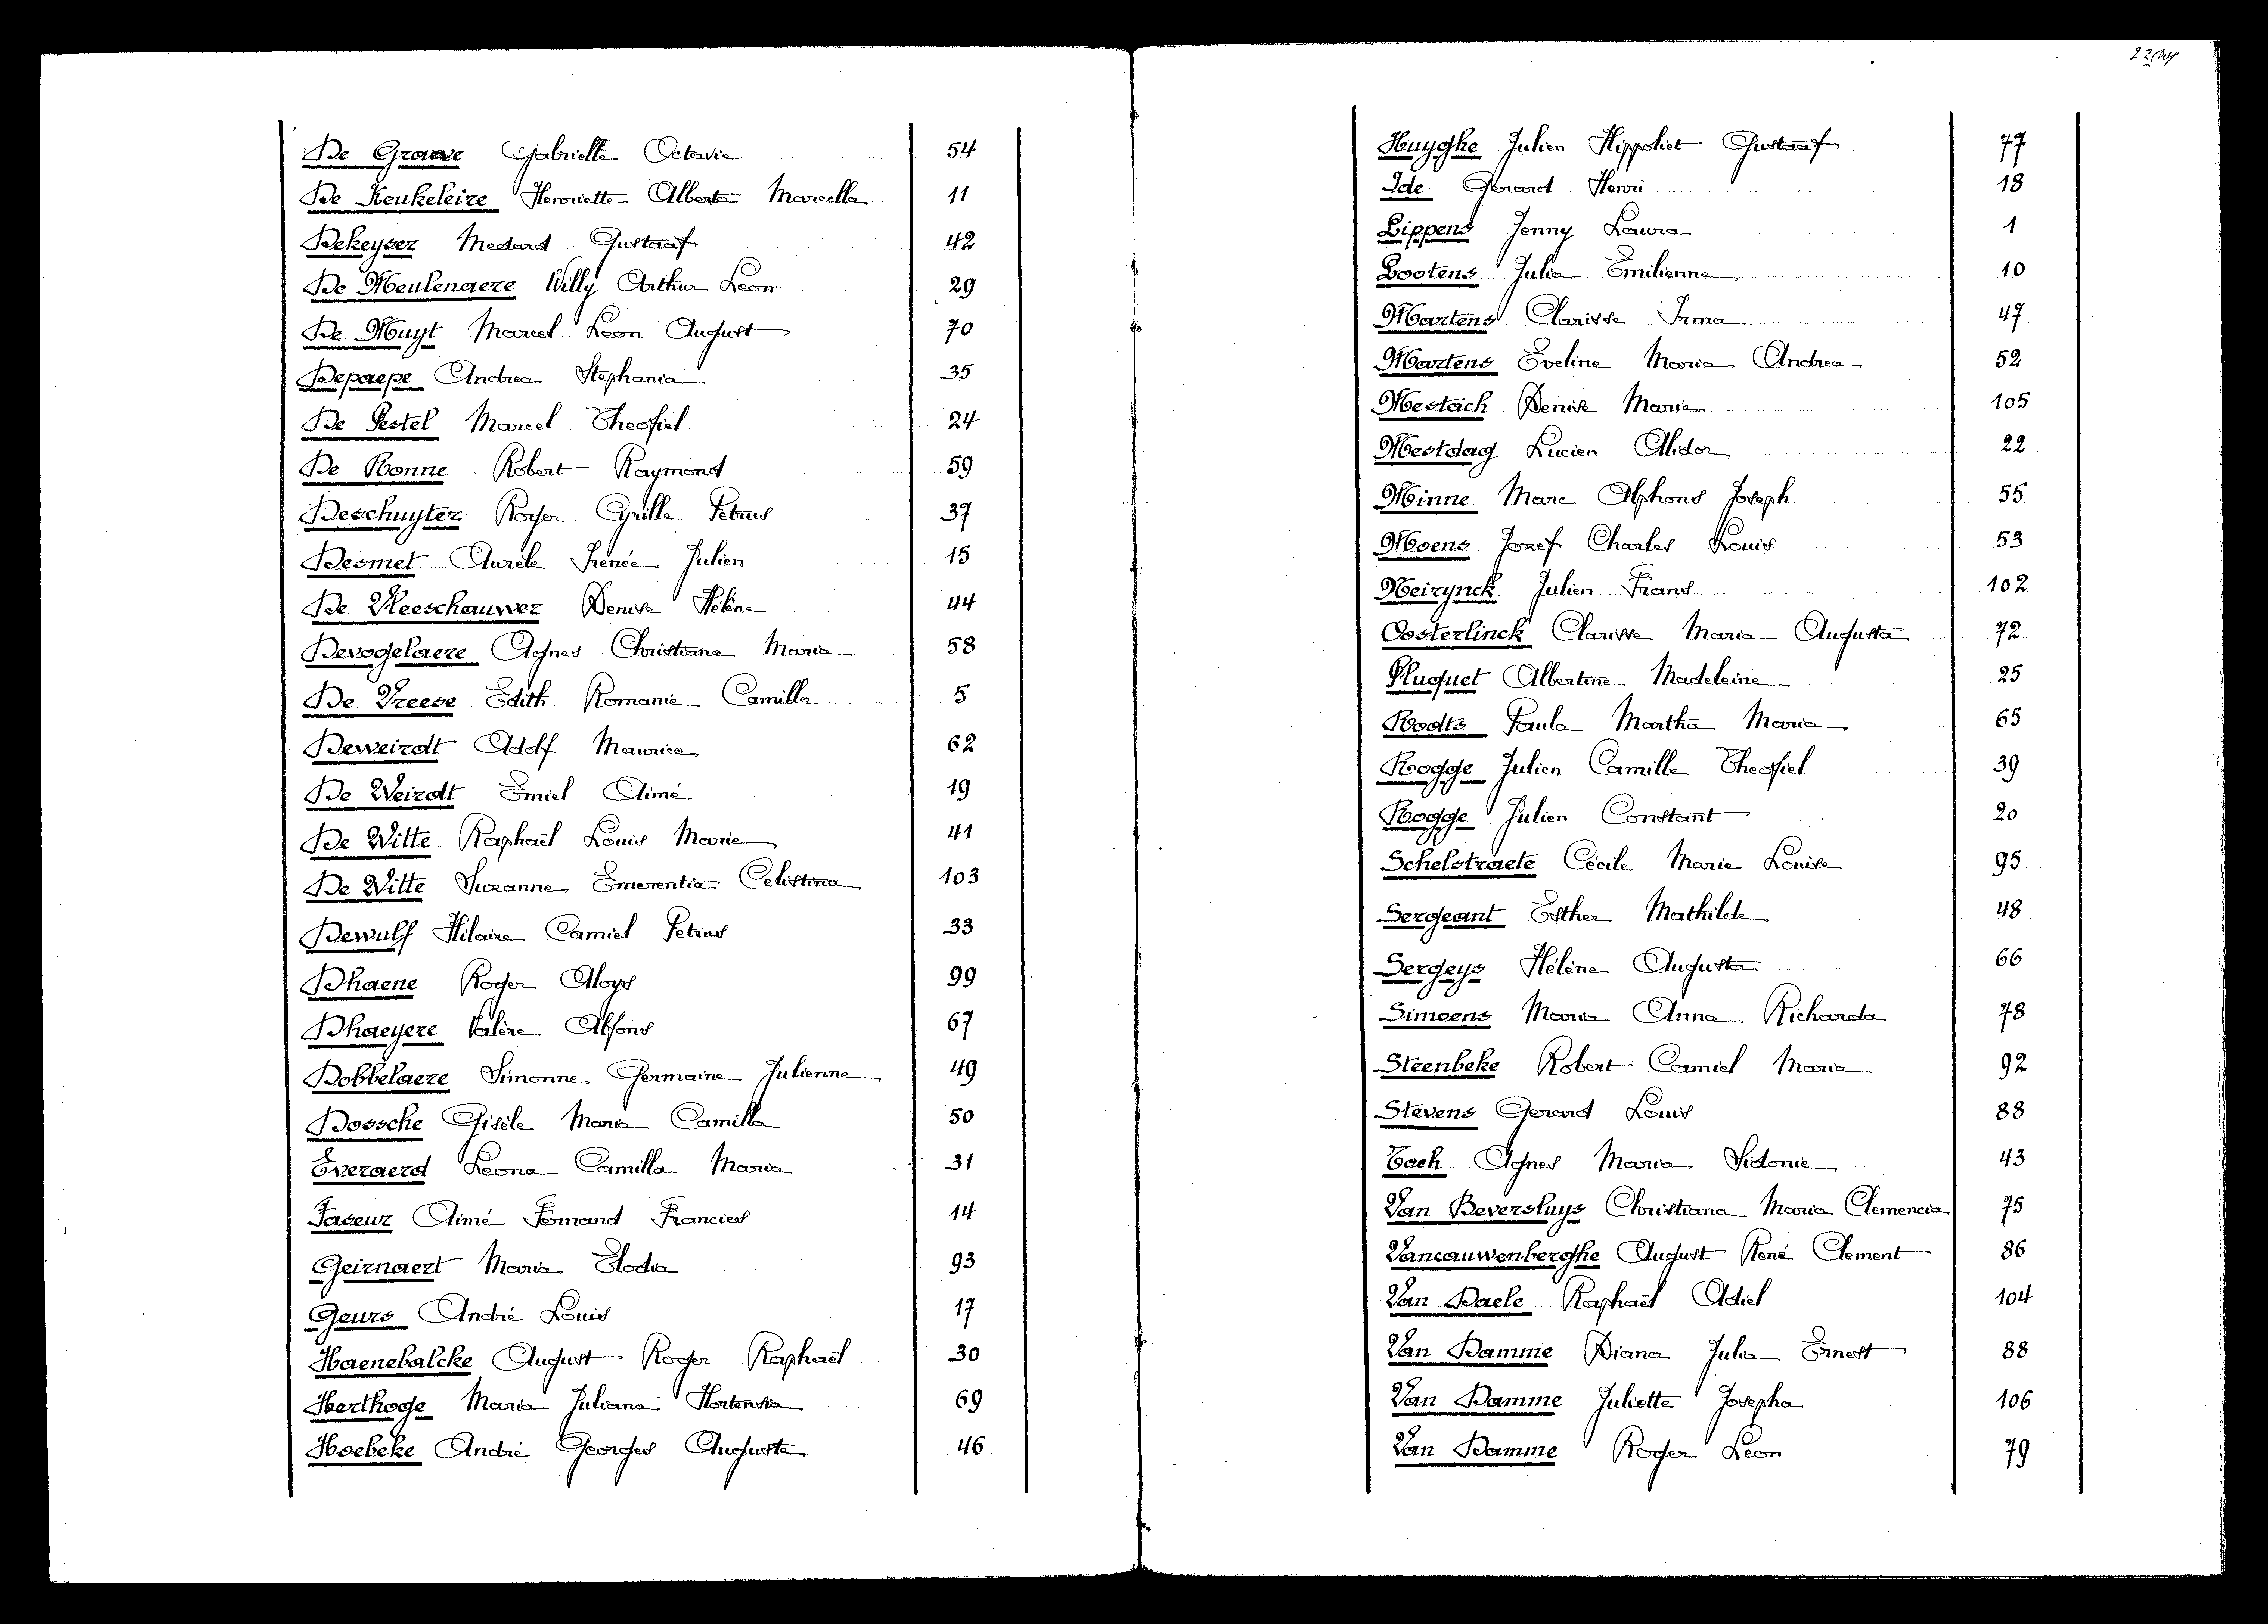 De Graeve Gabrielle Octavie 54
De Keukeleire Henriette Alberta Marcella 11
Dekeyser Medard Gustaaf 42
De Meulenaere Willy Arthur Leon 29
De Muyt Marcel Leon August 70
Depaepe Andrea Stephania 35
De Pestel Marcel Theofiel 24
De Ronne Robert Raymond 59
Deschuyter Roger Cyrille Petrus 37
Desmet Aurèle Irenée Julien 15
De Vleeschauwer Denise Hélène 44
Devogelaere Agnes Christiane Maria 58
De Vreese Edith Romanie Camilla 5
Deweirdt Adolf Maurice 62
De Weirdt Emiel Aimé 19
De Witte Raphaël Louis Marie 41
De Witte Suzanne Emerentia Celistina 103
Dewulf Hilaire Camiel Petrus 33
Dhaene Roger Aloys 99
Dhaeyere Valère Alfons 67
Dobbelaere Simonne Germaine Julienne 49
Dossche Gisèle Maria Camilla 50
Everaerd Leona Camilla Maria 31
Faseur Aimé Fernand Francies 14
Geirnaert Maria Elodia 93
Geurs André Louis 17
Haenebalcke August Roger Raphaël 30
Herthoge Maria Juliana Hortensia 69
Hoebeke André Georges Auguste 46
Huyghe Julien Hippoliet Gustaaf 77
Ide Gerard Henri 18
Lippens Jenny Laura 1
Lootens Julia Emilienne 10
Martens Clarisse Irma 47
Martens Eveline Maria Andrea 52
Mestach Denise Marie 105
Mestdag Lucien Alidor 22
Minne Marc Alphons Joseph 55
Moens Jozef Charles Louis 53
Neirynck Julien Frans 102
Oosterlinck Clarisse Maria Augusta 72
Pluquet Albertine Madeleine 25
Rodts Paula Martha Maria 65
Rogge Julien Camille Theofiel 39
Rogge Julien Constant 20
Schelstraete Cécile Marie Louise 95
Sergeant Esther Mathilde 48
Sergeys Hélène Augusta 66
Simoens Maria Anna Richarda 78
Steenbeke Robert Camiel Maria 92
Stevens Gerard Louis 88
Toch Agnes Maria Sidonie 43
Van Beversluys Christiana Maria Clemencia 75
Vancauwenberghe August René Clement 86
Van Daele Raphaël Adiel 104
Van Damme Diana Julia Ernest 88
Van Damme Juliette Josepha 106
Van Damme Roger Leon 79